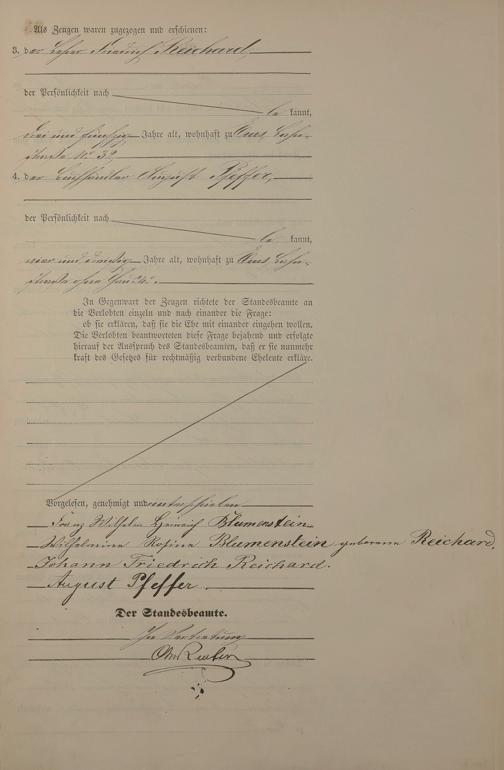 Als Zeugen waren zugezogen und erschienen:
3. der Lehrer Friedrich Reichard,
der Persönlichkeit nach
be kannt,
drei und fünfzig Jahre alt, wohnhaft zu
4. der August Pfeffer,
der Persönlichkeit nach
be kannt,
vier und zwanzig Jahre alt, wohnhaft zu
In Gegenwart der Zeugen richtete der Standesbeamte an
die Verlobten einzeln und nach einander die Frage:
ob sie erklären, daß sie die Ehe mit einander eingehen wollen.
Die Verlobten beantworteten diese Frage bejahend und erfolgte
hierauf der Ausspruch des Standesbeamten, daß er sie nunmehr
kraft des Gesetzes für rechtmäßig verbundene Eheleute erkläre.
Vorgelesen, genehmigt und unterschrieben
Franz Wilhelm Heinrich Blumenstein
Wilhelmine Rosine Blumenstein geborene Reichard.
Johann Friedrich Reichard.
August Pfeffer.
Der Standesbeamte.
In Vertretung